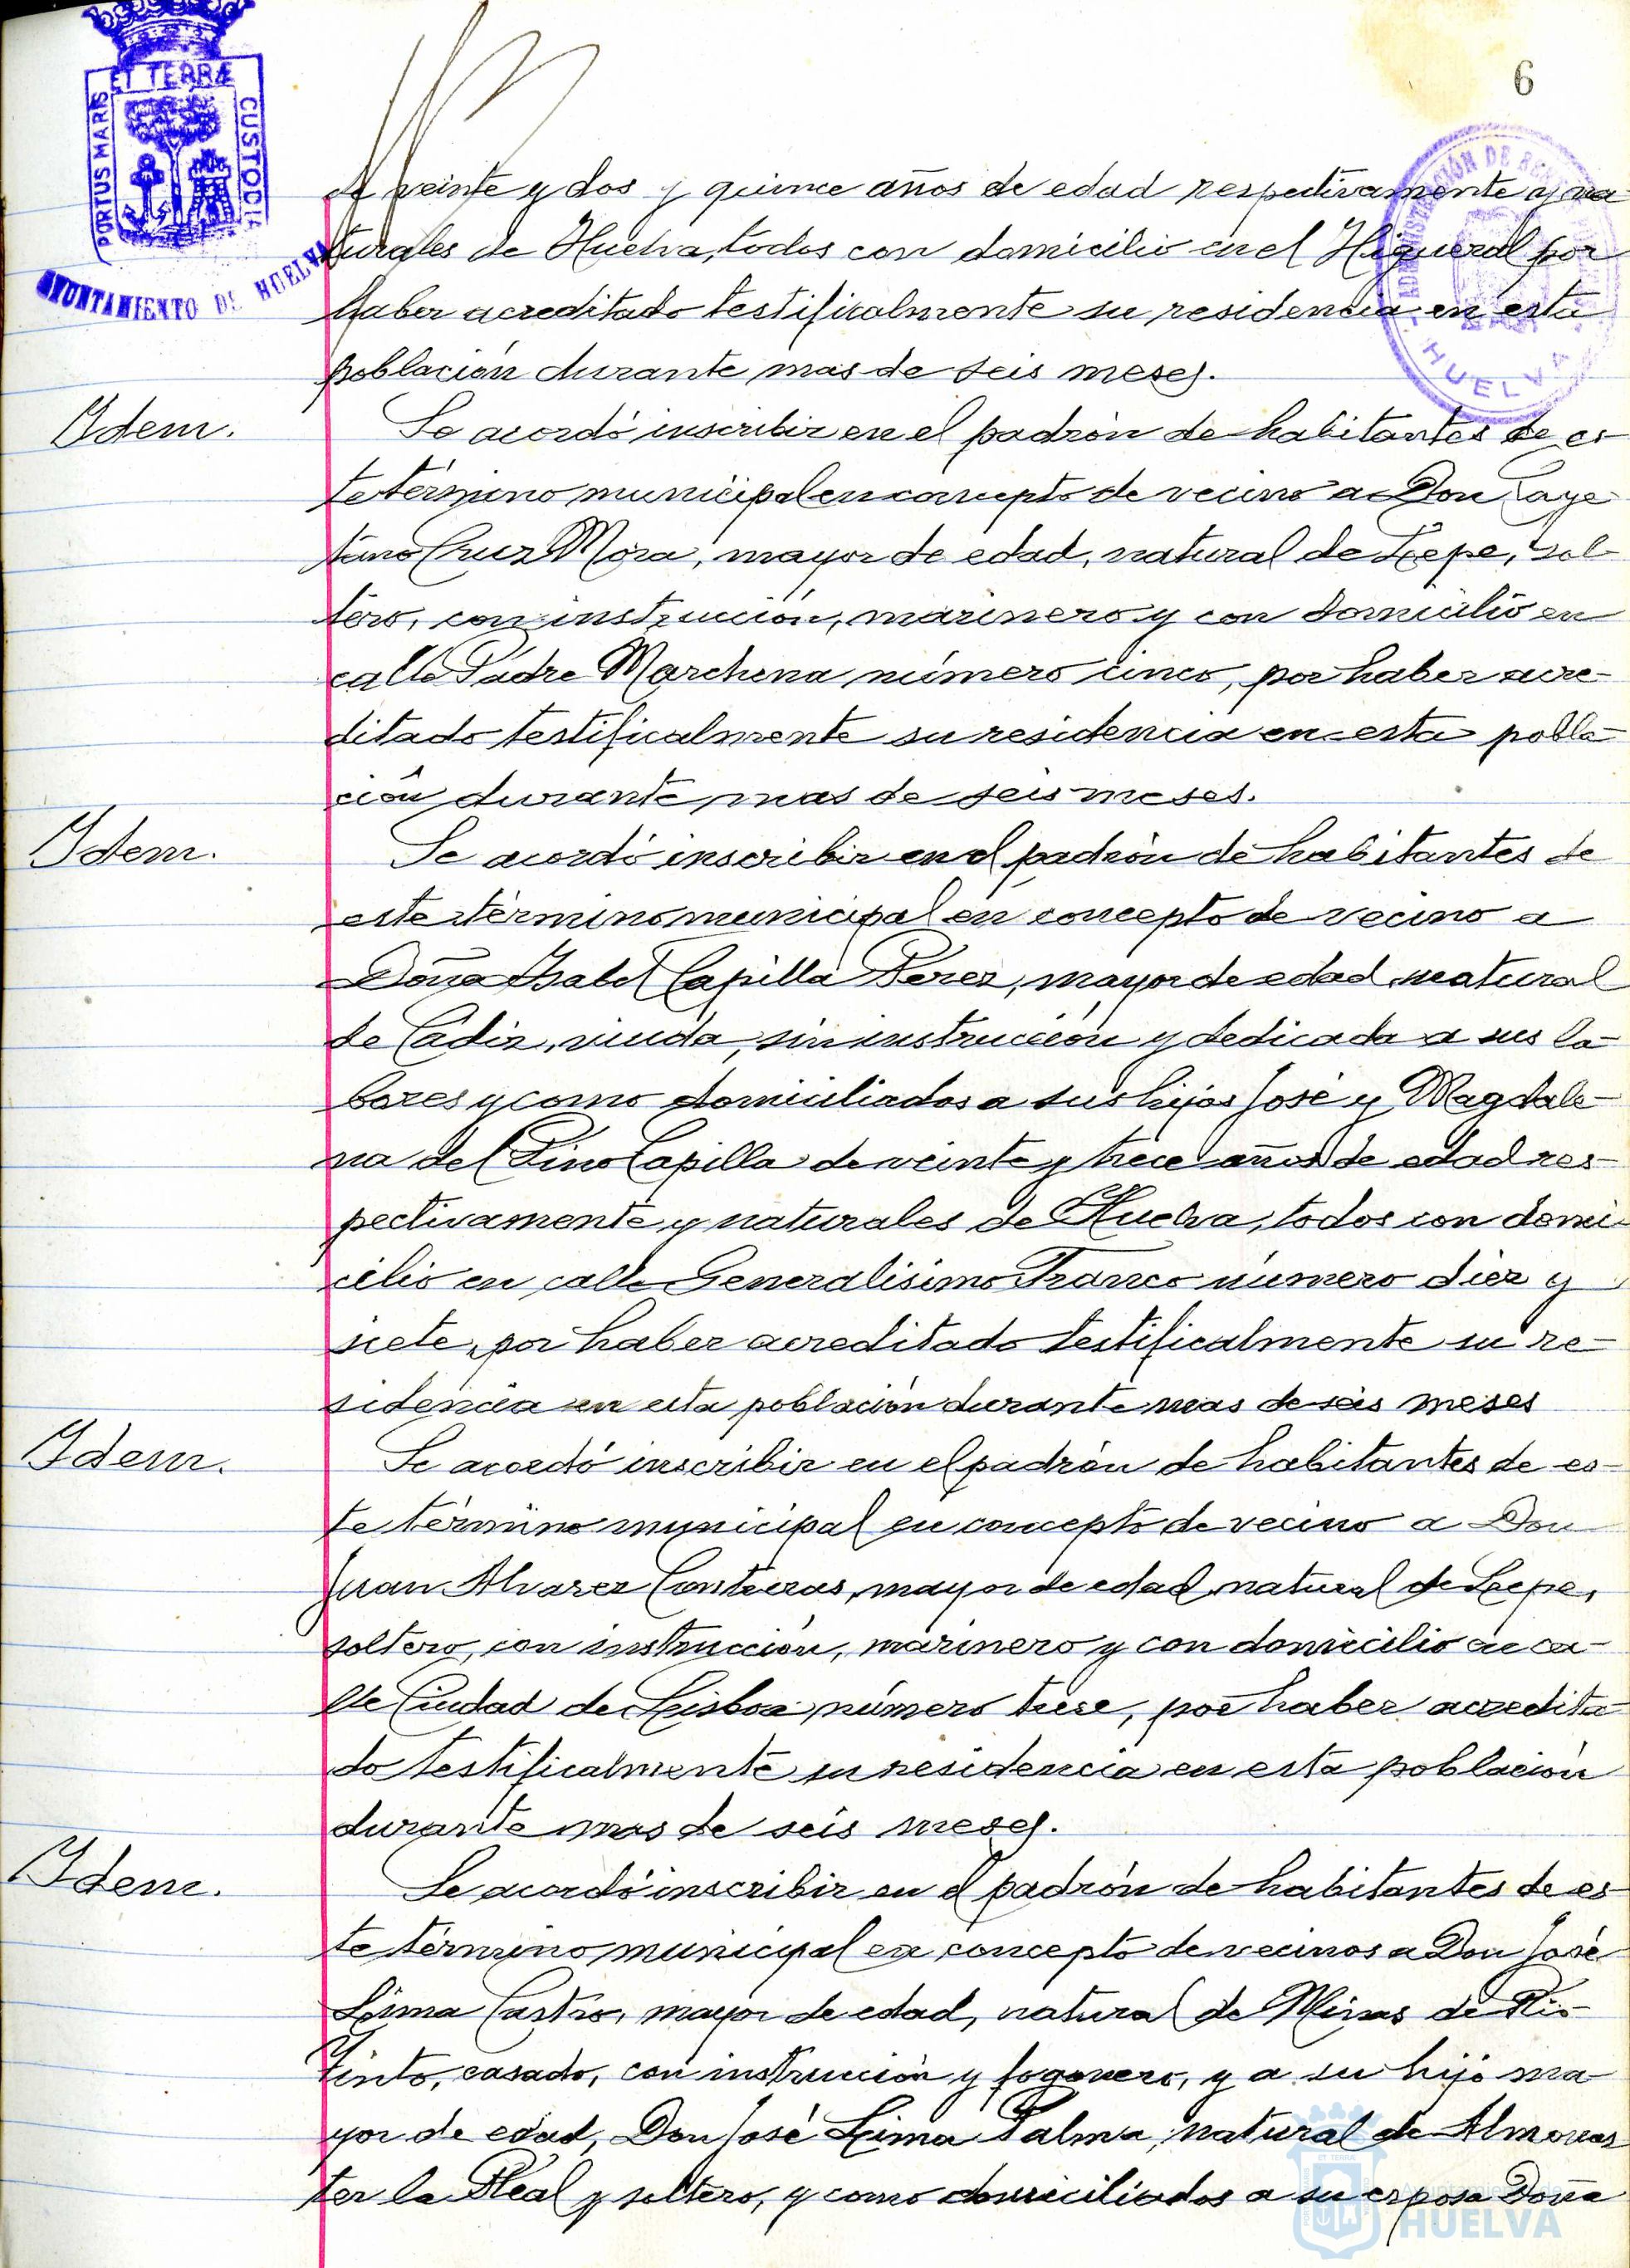 6
PORTUS MARIS ET TERRÆ CUSTODIA
AYUNTAMIENTO DE HUELVA
HUELVA
de veinte y dos y quince años de edad respectivamente y na-
turales de Huelva, todos con domicilio en el Higueral por
haber acreditado testificalmente su residencia en esta
población durante mas de seis meses.
Idem.
Se acordó inscribir en el padrón de habitantes de es-
te término municipal en concepto de vecino a Don Caye-
tano Cruz Mora, mayor de edad, natural de Lepe, sol-
tero, con instrucción, marinero y con domicilio en
calle Padre Marchena número cinco, por haber acre-
ditado testificalmente su residencia en esta pobla-
ción durante mas de seis meses.
Idem.
Se acordó inscribir en el padrón de habitantes de
este término municipal en concepto de vecino a
Doña Isabel Capilla Perez, mayor de edad, natural
de Cadiz, viuda, sin instrucción y dedicada a sus la-
bores y como domiciliados a sus hijos José y Magdale-
na del Pino Capilla de veinte y trece años de edad res-
pectivamente y naturales de Huelva, todos con domi-
cilio en calle Generalisimo Franco número diez y
siete, por haber acreditado testificalmente su re-
sidencia en esta población durante mas de seis meses
Idem.
Se acordó inscribir en el padrón de habitantes de es-
te término municipal en concepto de vecino a Don
Juan Alvarez Contreras, mayor de edad, natural de Lepe,
soltero, con instrucción, marinero y con domicilio en ca-
lle Ciudad de Lisboa número trece, por haber acredita-
do testificalmente su residencia en esta población
durante mas de seis meses.
Idem.
Se acordó inscribir en el padrón de habitantes de es-
te término municipal en concepto de vecinos a Don José
Lima Castro, mayor de edad, natural de Minas de Rio-
Tinto, casado, con instrucción y fogonero, y a su hijo ma-
yor de edad, Don José Lima Palma, natural de Almonas-
ter la Real y soltero, y como domiciliados a su esposa Doña
HUELVA